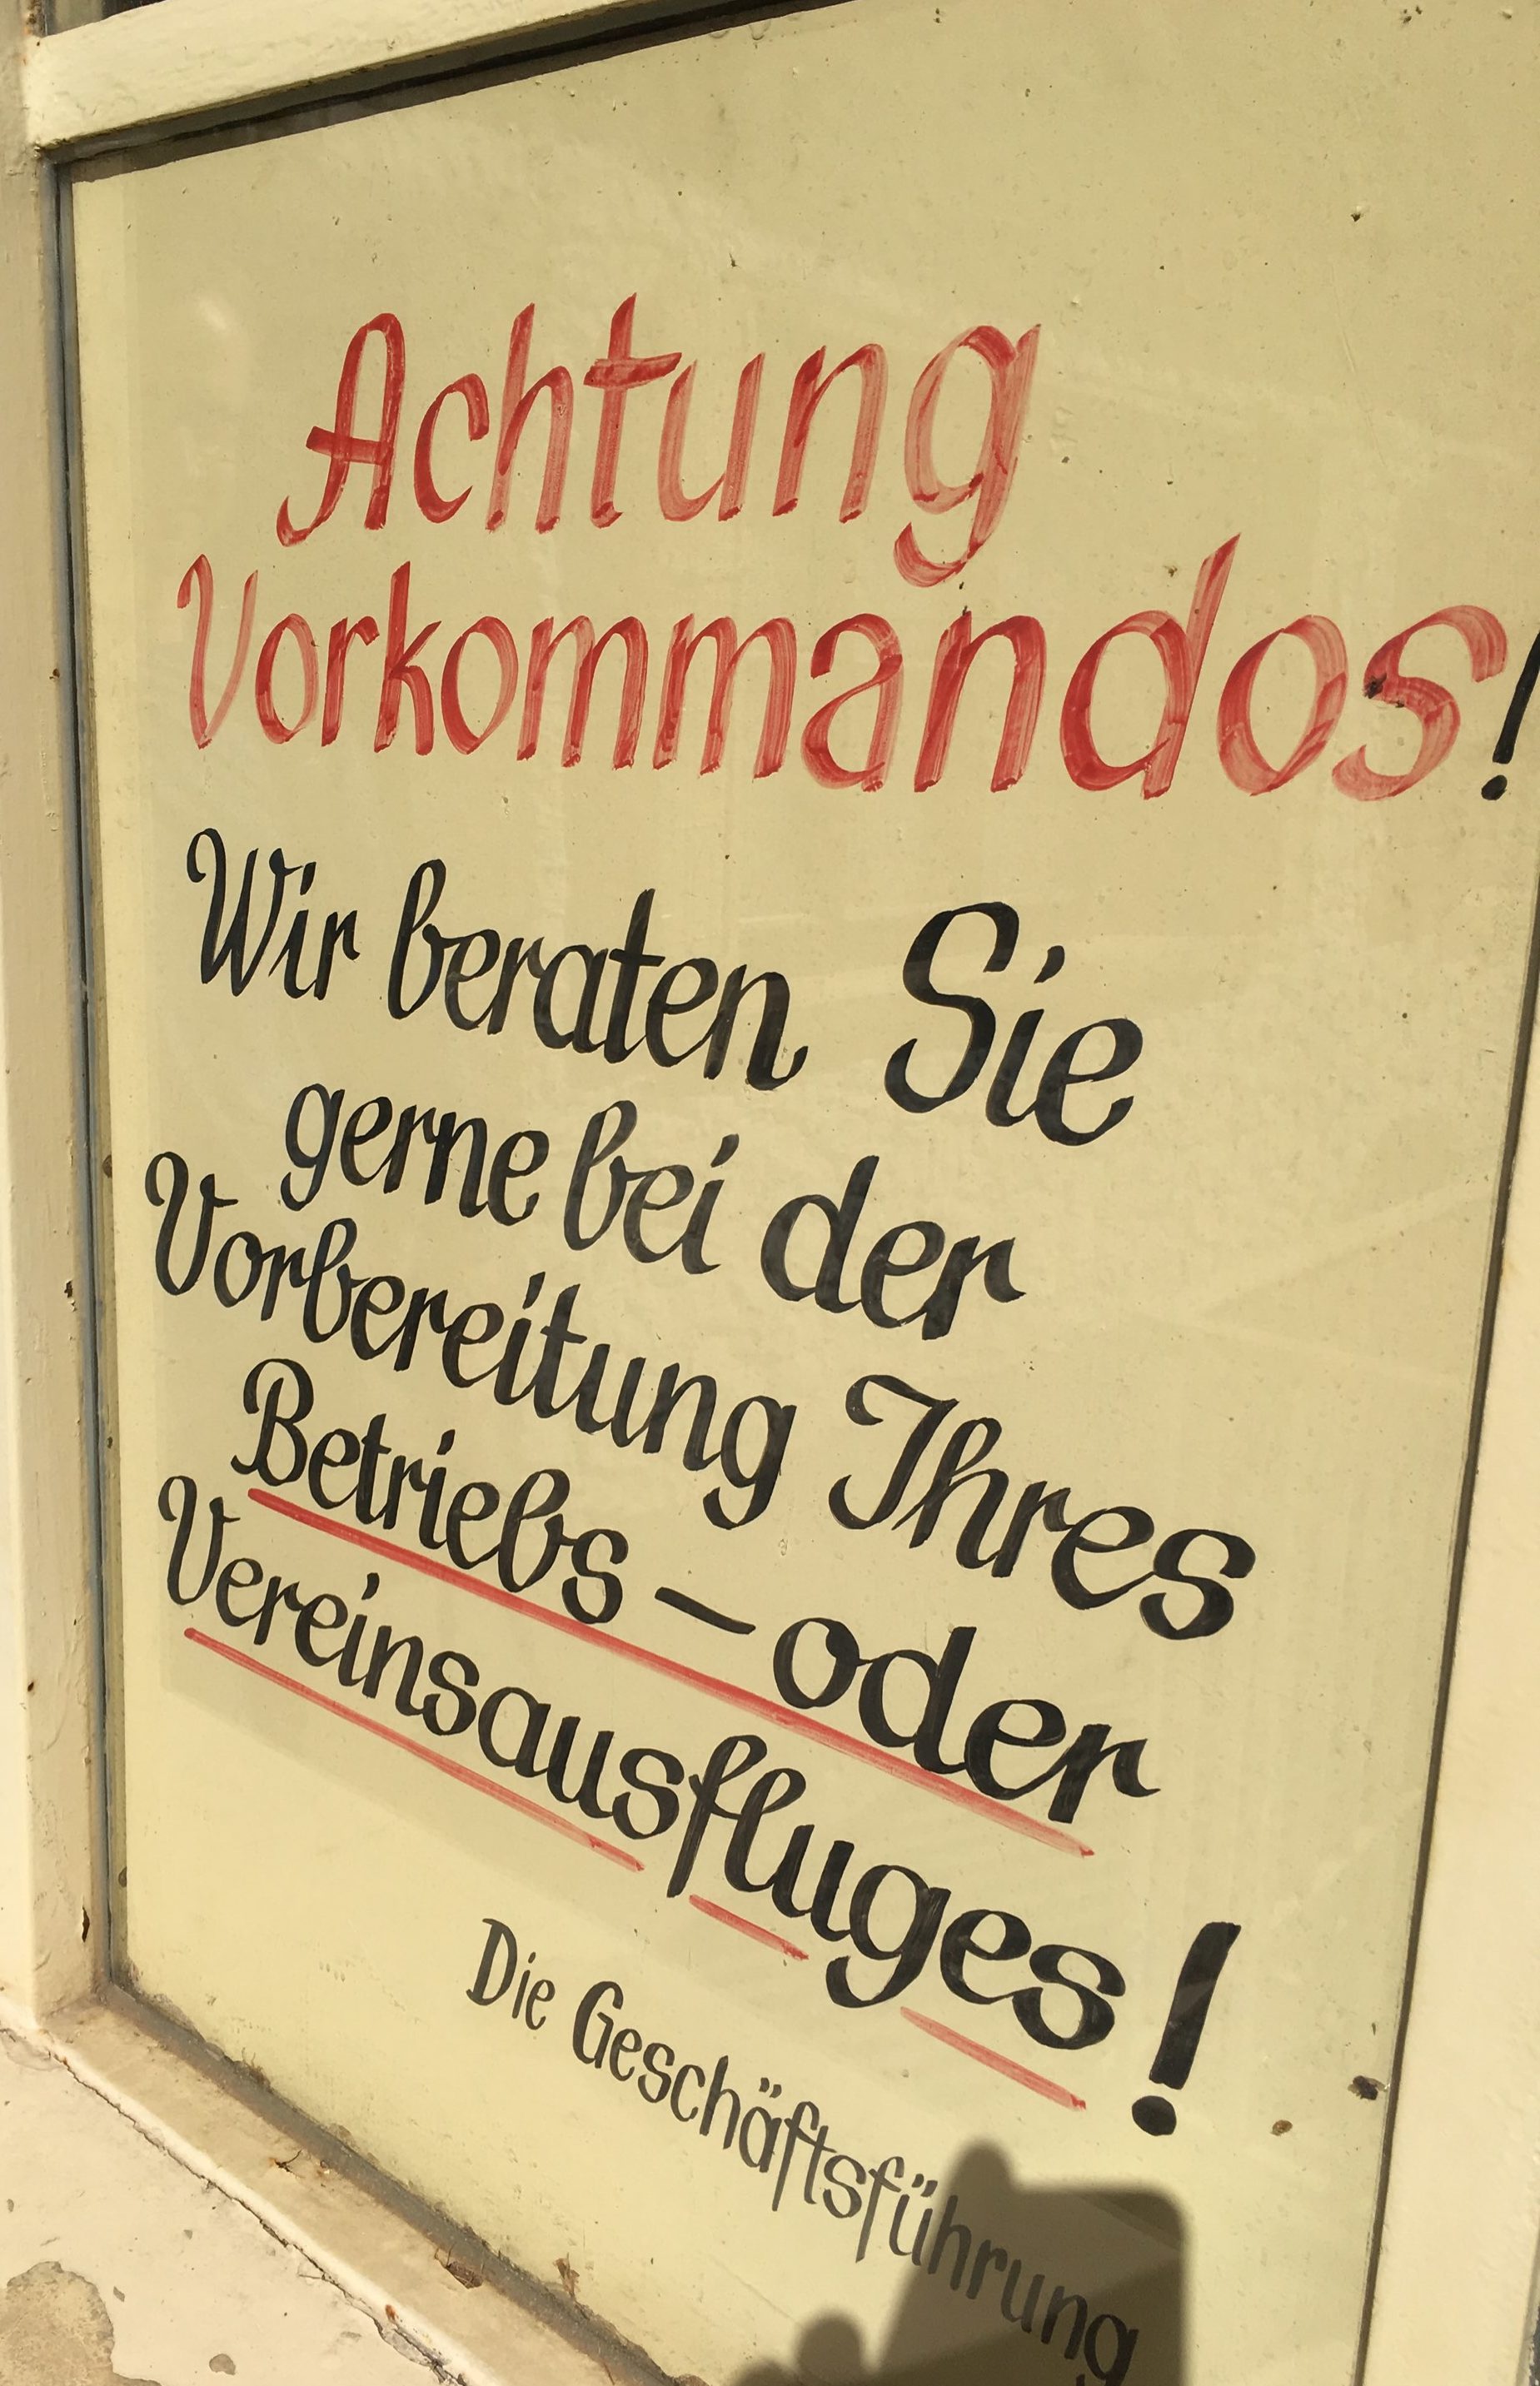 Achtung
Vorkommandos!
Wir beraten Sie
gerne bei der
Vorbereitung Ihres
Betriebs - oder
Vereinsausfluges!
Die Geschäftsführung